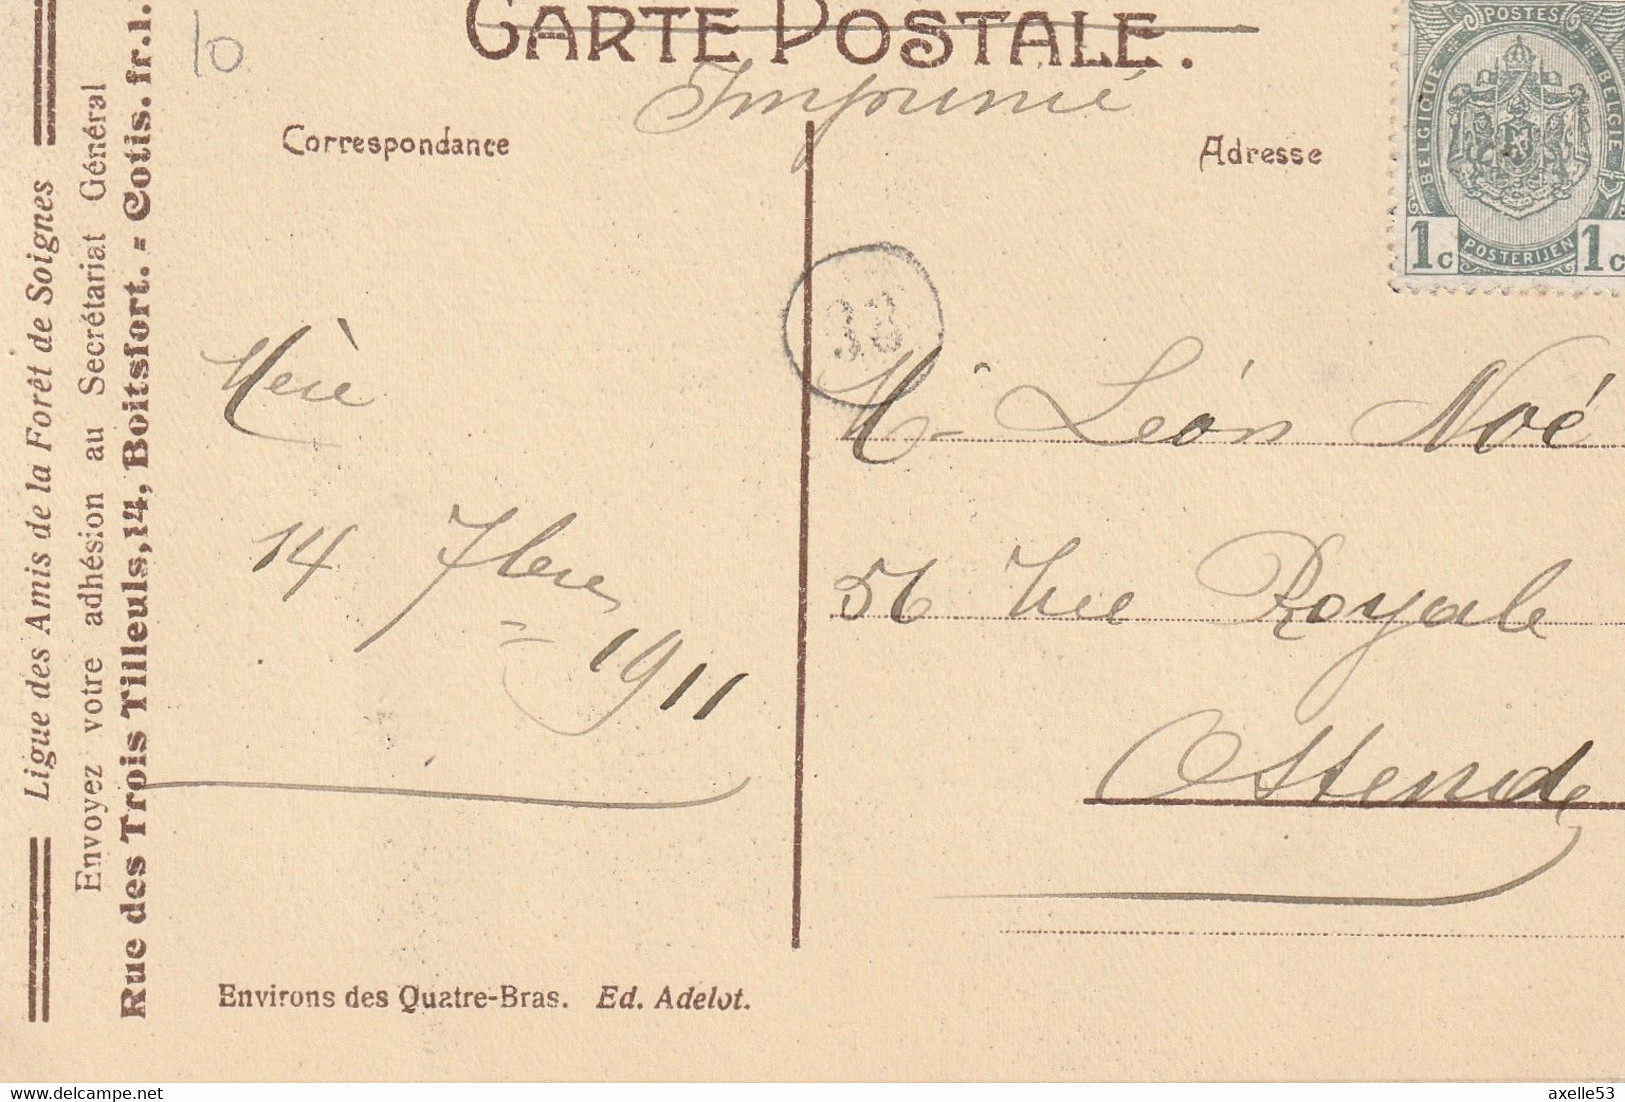 CARTE POSTALE.
10
Imprimé
Correspondance
Adresse
POSTES
BELGIQUE
BELGIE
1c POSTERIJEN 1c
38
Ligue des Amis de la Forêt de Soignes
Envoyez votre adhésion au Secrétariat Général
Rue des Trois Tilleuls, 14, Boitsfort. - Cotis. fr. 1.
Mère
14 7bere
1911
Mr Léon Noé
56 Rue Royale
Ostende
Environs des Quatre-Bras. Ed. Adelot.
https://www.delcampe.net
axelle53